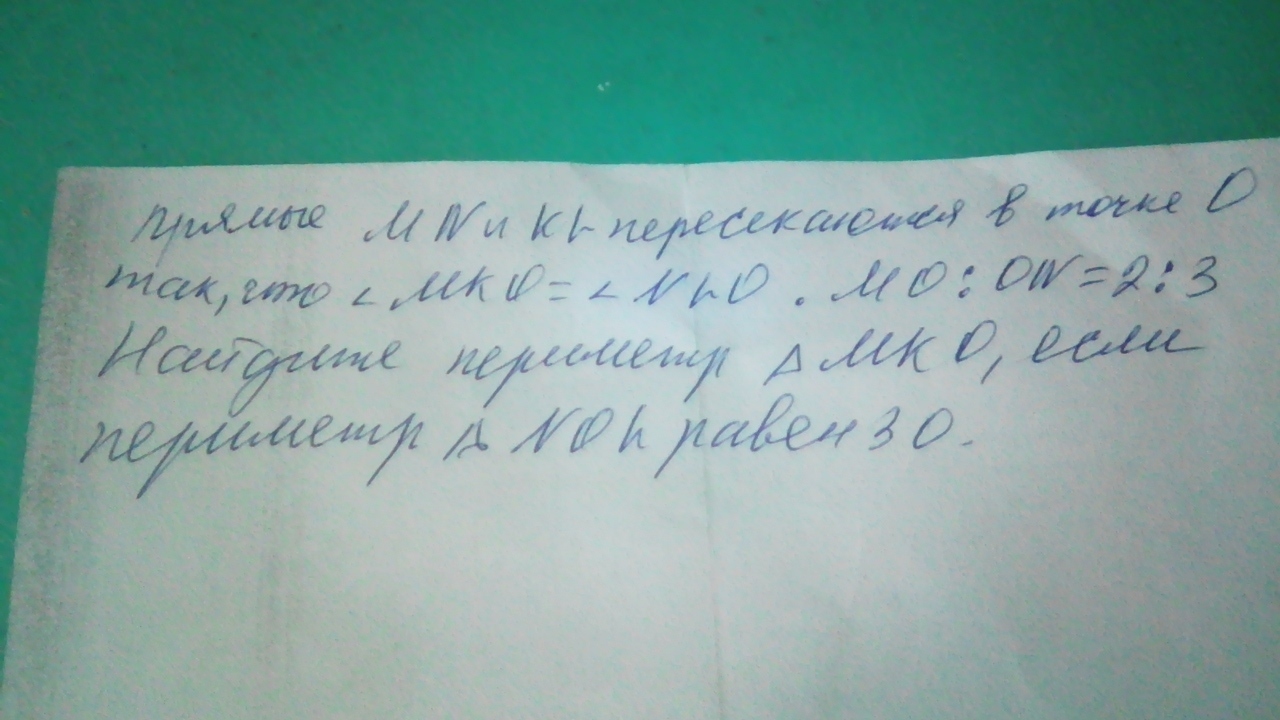 Прямые MN и KL пересекаются в точке O
так, что ∠MKO=∠NLO. MO:ON=2:3
Найдите периметр △MKO, если
периметр △NOL равен 30.